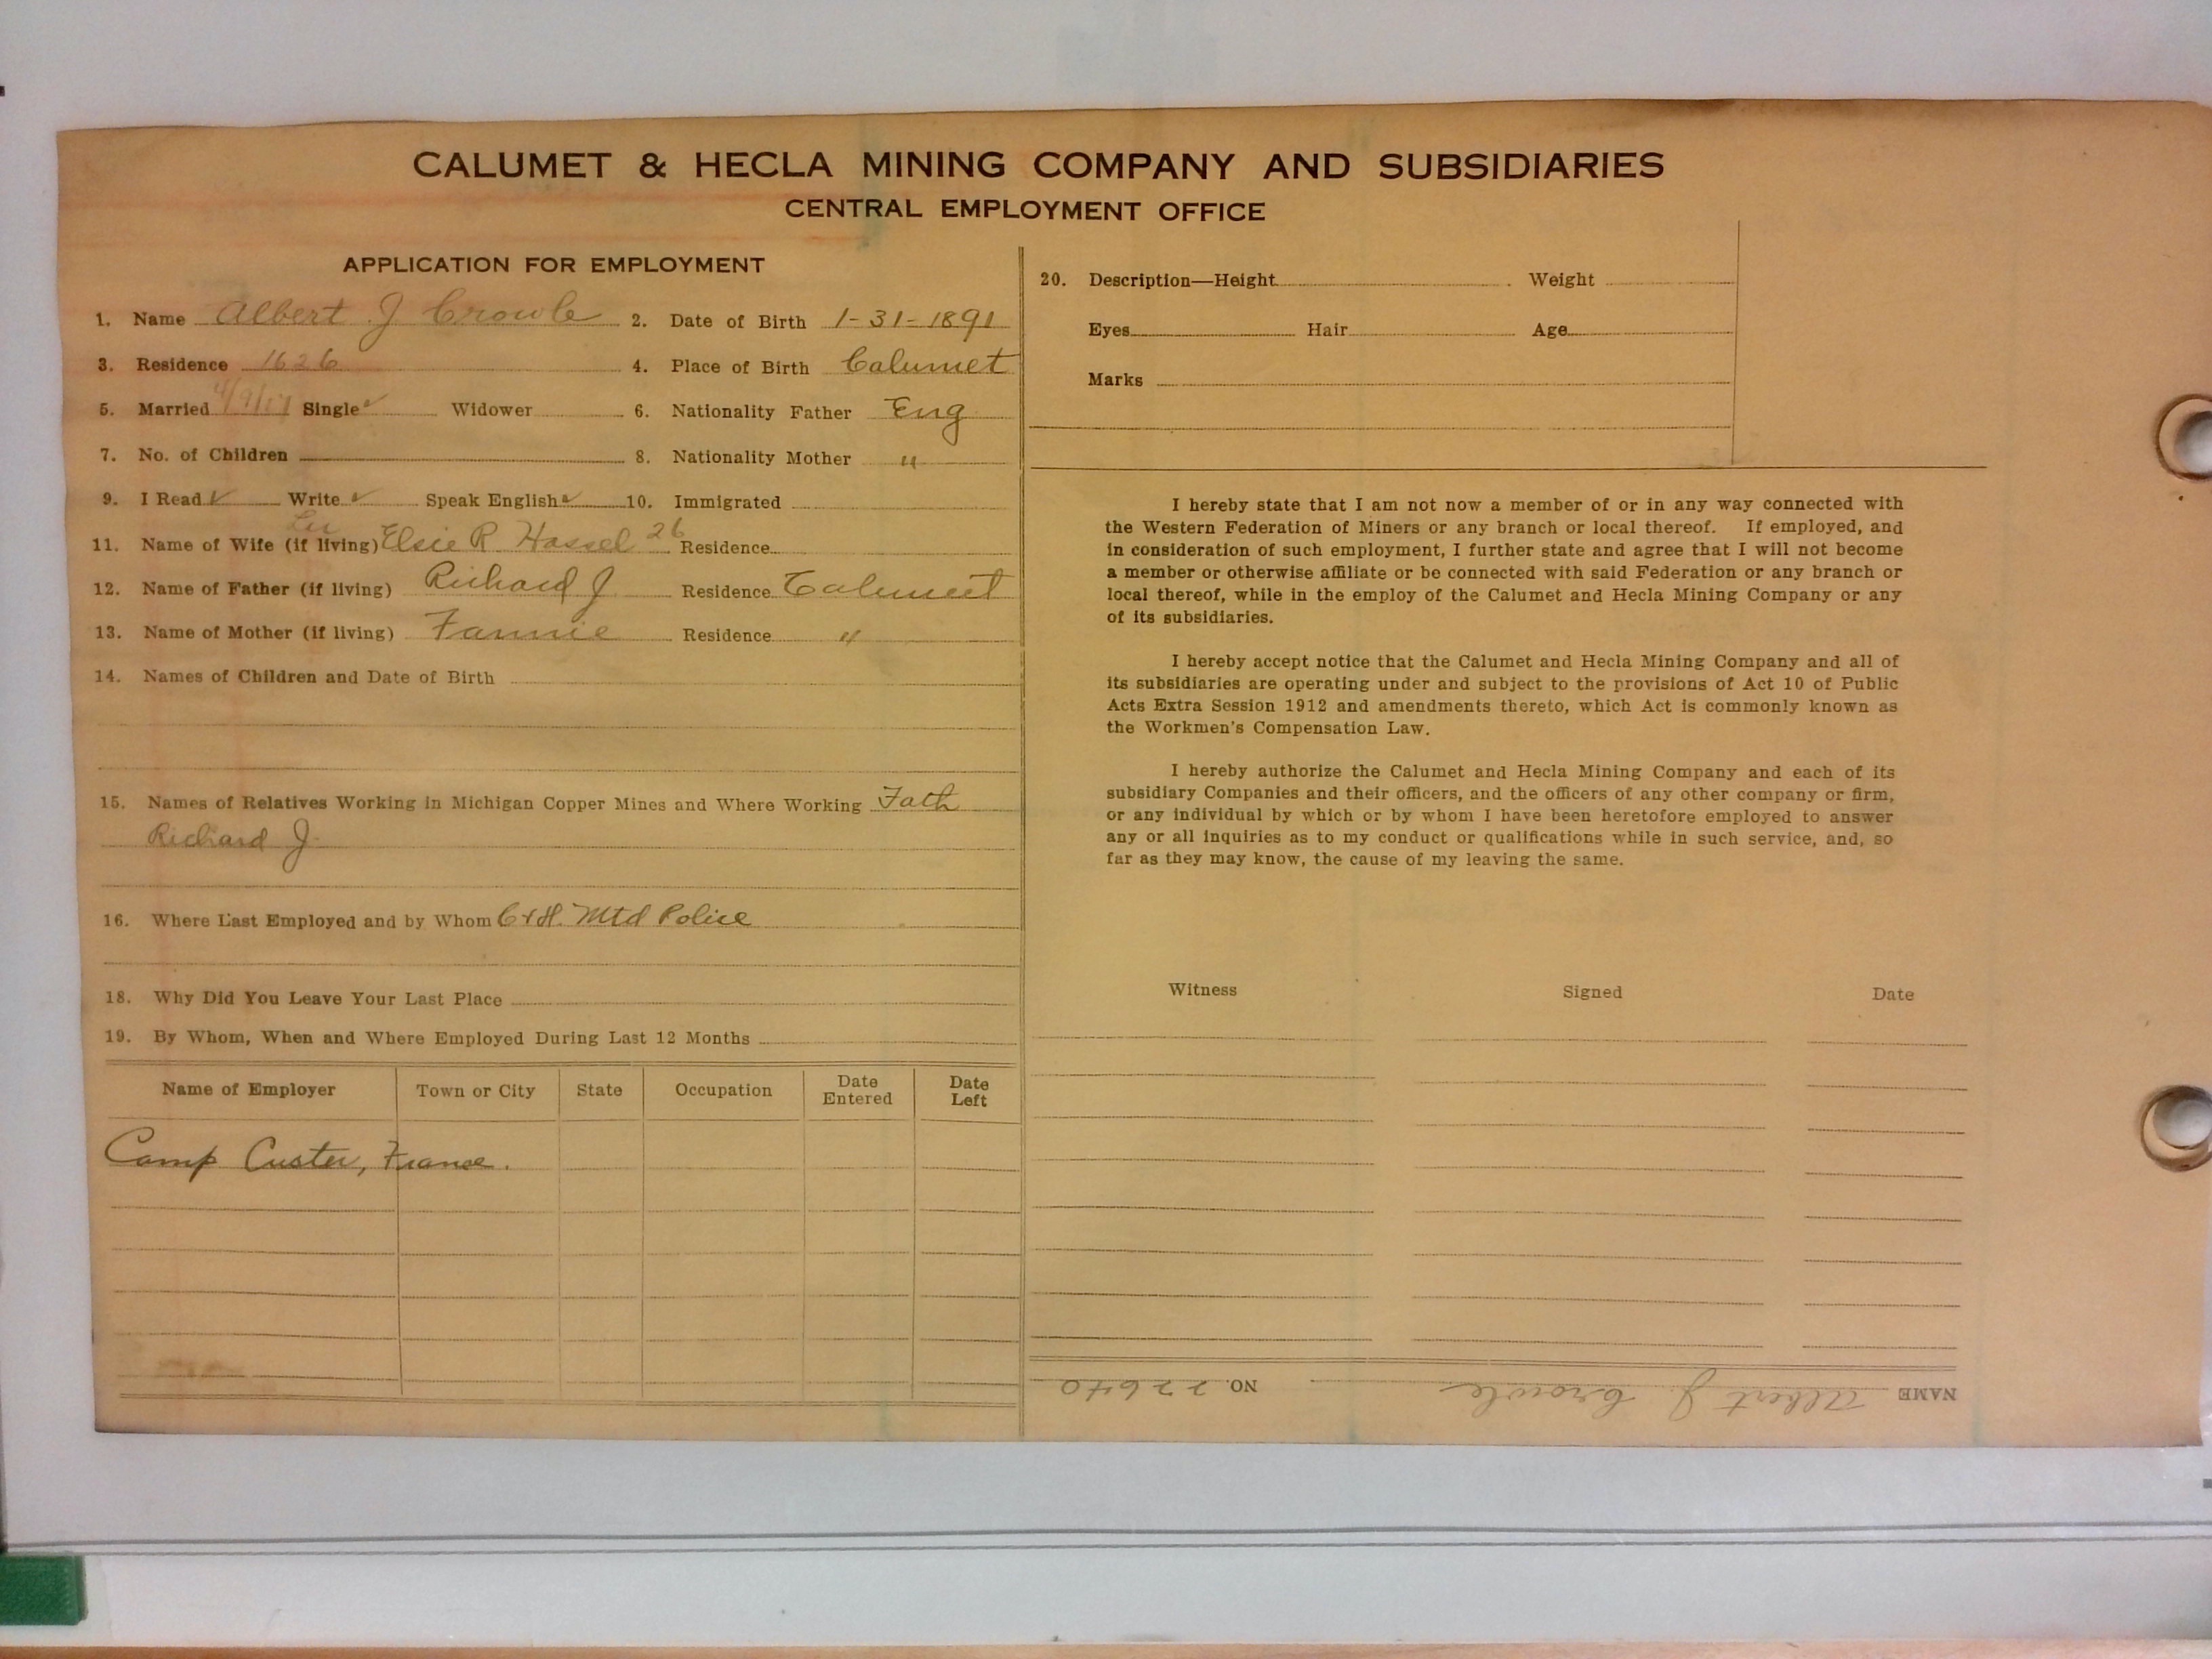 CALUMET & HECLA MINING COMPANY AND SUBSIDIARIES
CENTRAL EMPLOYMENT OFFICE
APPLICATION FOR EMPLOYMENT
1. Name Albert J Crowle 2. Date of Birth 1-31-1891
3. Residence 1626 4. Place of Birth Calumet
5. Married Single ✓ Widower 6. Nationality Father Eng
7. No. of Children 8. Nationality Mother "
9. I Read ✓ Write ✓ Speak English ✓ 10. Immigrated
11. Name of Wife (if living) Elsie R Hassel 26 Residence
12. Name of Father (if living) Richard J Residence Calumet
13. Name of Mother (if living) Fannie Residence "
14. Names of Children and Date of Birth
15. Names of Relatives Working in Michigan Copper Mines and Where Working Fath
Richard J.
16. Where Last Employed and by Whom C & H. Mtd Police
18. Why Did You Leave Your Last Place
19. By Whom, When and Where Employed During Last 12 Months
Name of Employer Town or City State Occupation Date Entered Date Left
Camp Custer, France.
20. Description—Height Weight
Eyes Hair Age
Marks
I hereby state that I am not now a member of or in any way connected with
the Western Federation of Miners or any branch or local thereof. If employed, and
in consideration of such employment, I further state and agree that I will not become
a member or otherwise affiliate or be connected with said Federation or any branch or
local thereof, while in the employ of the Calumet and Hecla Mining Company or any
of its subsidiaries.
I hereby accept notice that the Calumet and Hecla Mining Company and all of
its subsidiaries are operating under and subject to the provisions of Act 10 of Public
Acts Extra Session 1912 and amendments thereto, which Act is commonly known as
the Workmen's Compensation Law.
I hereby authorize the Calumet and Hecla Mining Company and each of its
subsidiary Companies and their officers, and the officers of any other company or firm,
or any individual by which or by whom I have been heretofore employed to answer
any or all inquiries as to my conduct or qualifications while in such service, and, so
far as they may know, the cause of my leaving the same.
Witness Signed Date
NAME Albert J. Crowle NO. 22640